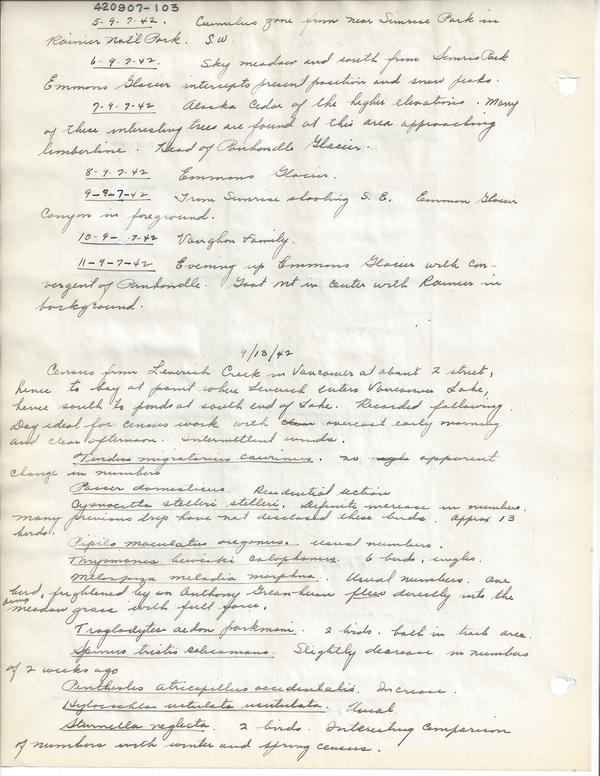 420907-103
5-9-7-42. Cumulus zone from near Sunrise Park in
Rainier Nat'l Park. S.W.
6-9-7-42. Sky meadow and south from Sunrise Park
Emmons Glacier intercepts present position and snow peaks.
7-9-7-42 Alaska Cedar of the higher elevations. Many
of these interesting trees are found at this area approaching
timberline. Head of Panhandle Glacier.
8-9-7-42 Emmons Glacier.
9-9-7-42 From Sunrise shooting S.E. Emmon Glacier
Canyon in foreground.
10-9-7-42 Vaughn Family.
11-9-7-42 Evening up Emmons Glacier with con-
vergent of Panhandle. Goat Mt in center with Rainier in
background.
9/13/42
Census from Leverich Creek in Vancouver at about 2 street,
hence to Bay at point where Leverich enters Vancouver Lake,
hence south to ponds at south end of Lake. Recorded following.
Day ideal for census work with clear overcast early morning
and clear afternoon. Intermittent winds.
Turdus migratorius caurinus. no apparent
change in numbers
Passer domesticus. Residential section
Cyanocitta stelleri stelleri. Definite increase in numbers.
Many previous trip have not disclosed these birds. Approx 13
birds.
Pipilo maculatus oregonus. Usual numbers.
Thryomanes bewicki calophonus. 6 birds, singles.
Melospiza melodia morphna. Usual numbers. One
bird, frightened by an Anthony Green heron flew directly into the
damp meadow grass with full force.
Troglodytes aedon parkmani. 2 birds. both in track area.
Spinus tristis salicamans. Slightly decrease in numbers
of 2 weeks ago
Penthestes atricapillus occidentalis. Increase.
Hylocichla ustulata ustulata. Usual.
Sturnella neglecta. 2 birds. Interesting comparison
of numbers with winter and spring census.